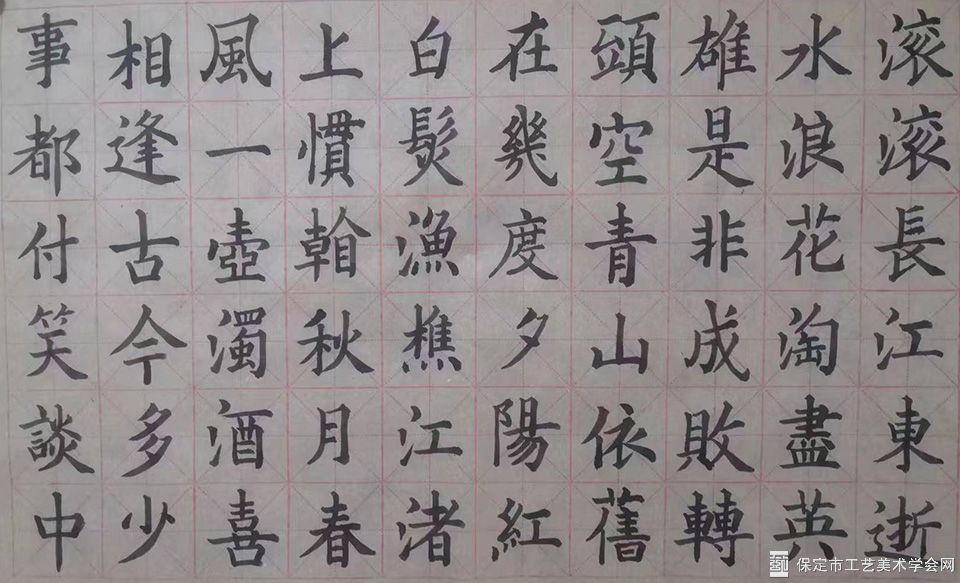 滚滚長江東逝
水浪花淘盡英
雄是非成敗轉
頭空青山依舊
在幾度夕陽紅
白髮漁樵江渚
上慣看秋月春
風一壺濁酒喜
相逢古今多少
事都付笑談中
保定市工艺美术学会网